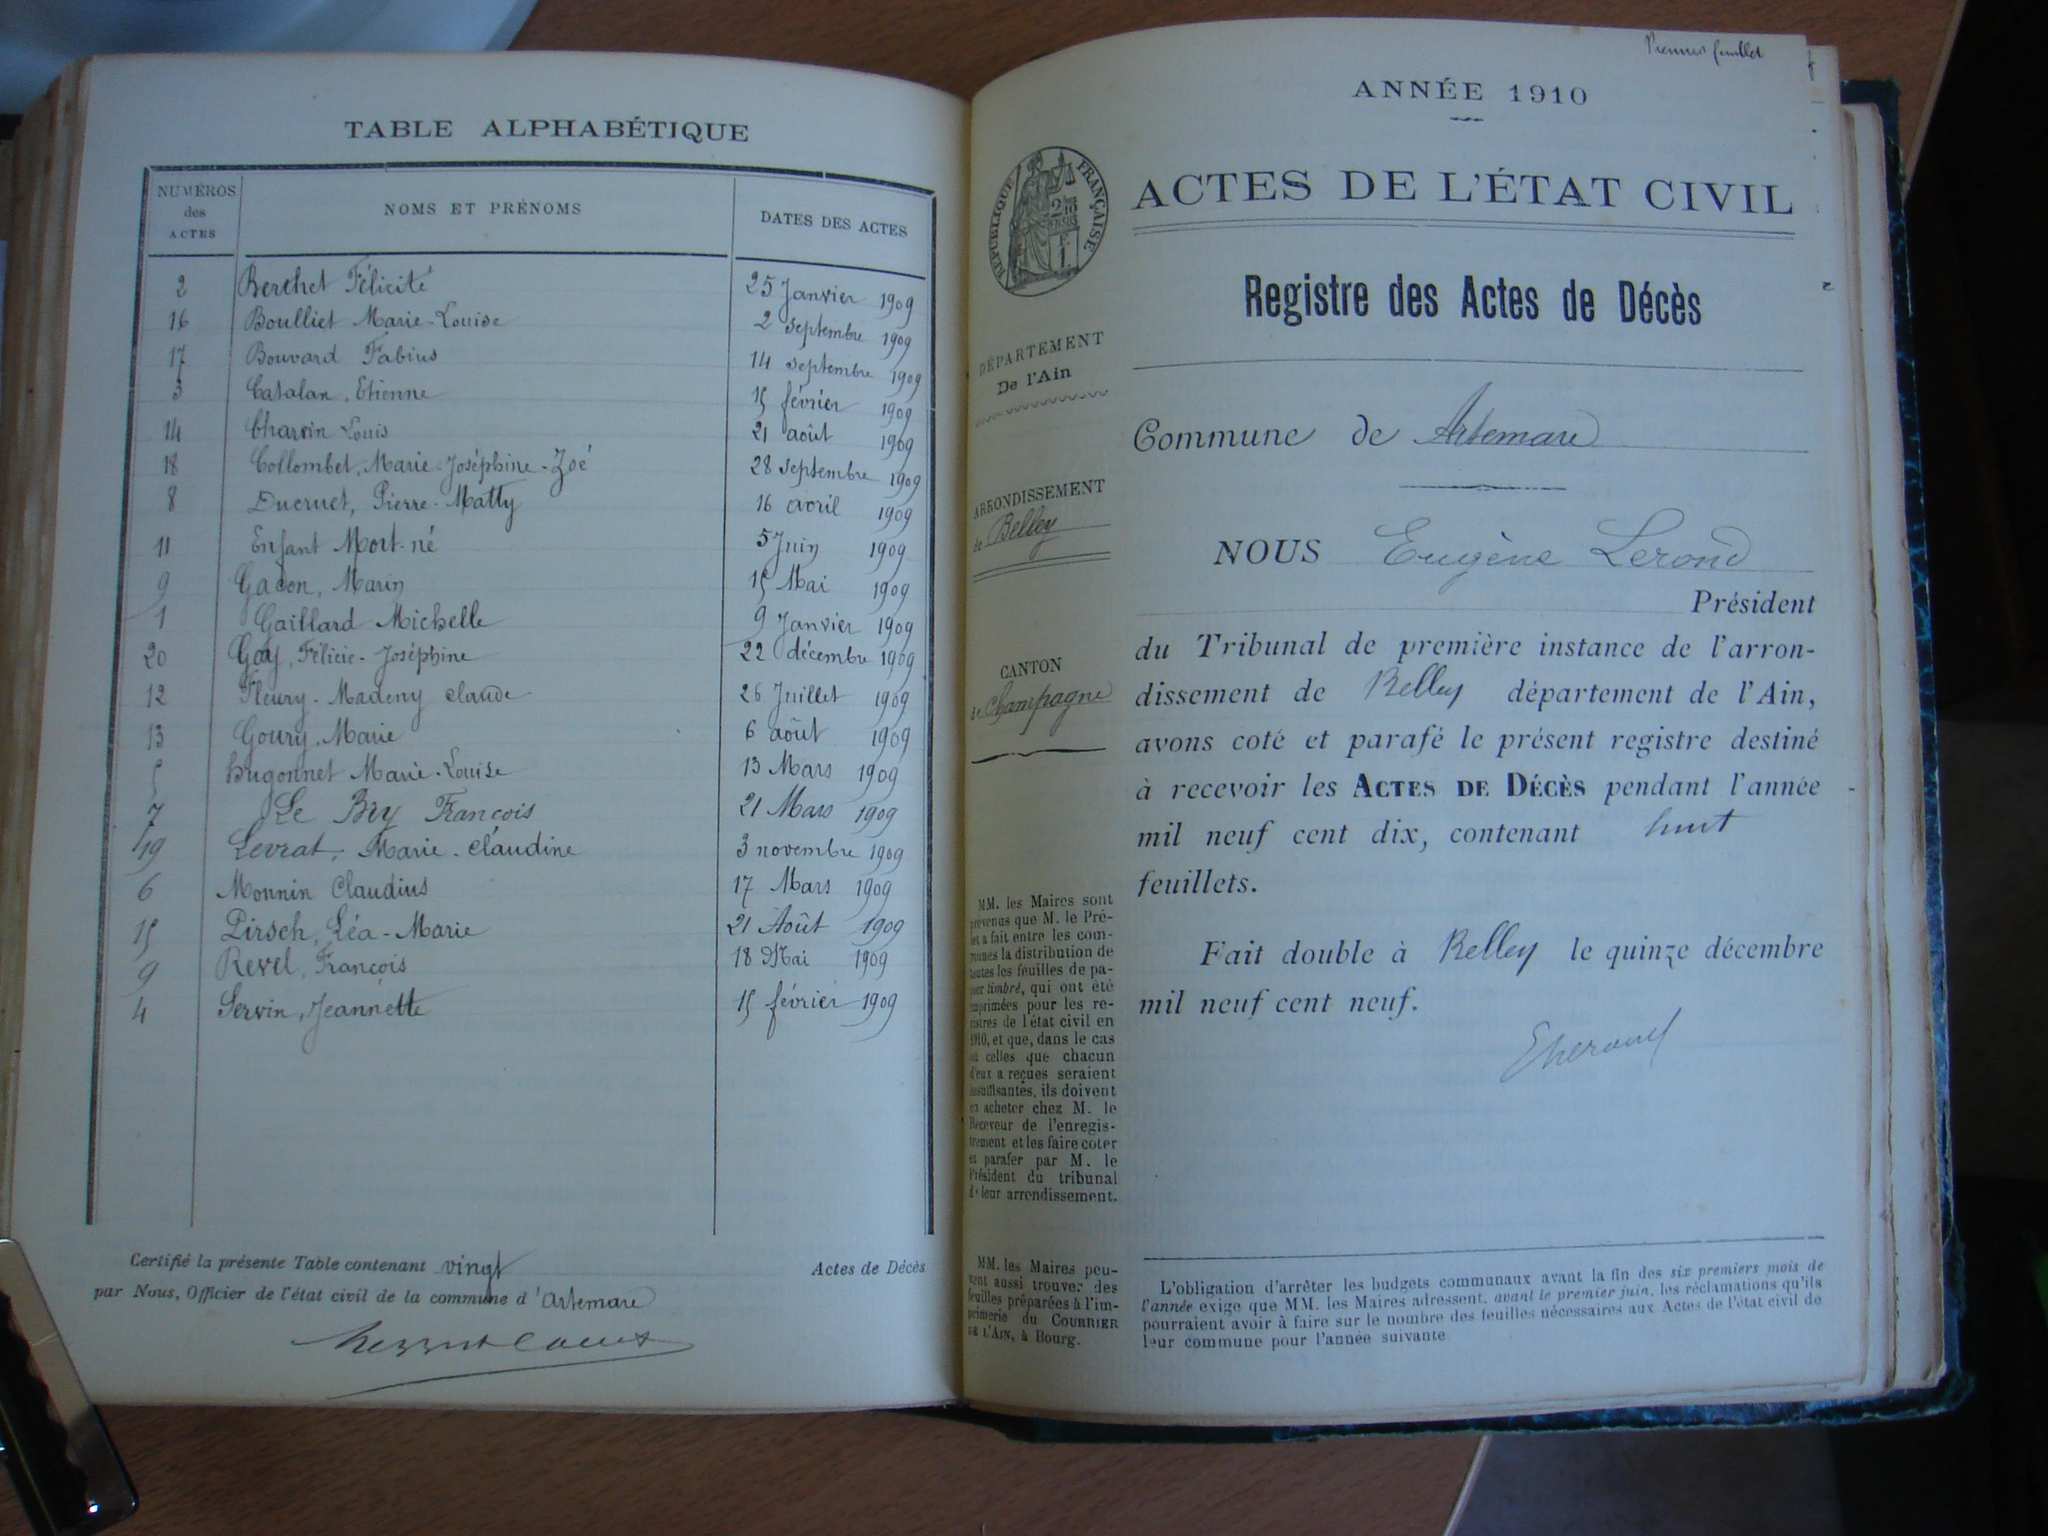 TABLE ALPHABÉTIQUE
NUMÉROS des ACTES NOMS ET PRÉNOMS DATES DES ACTES
2 Berchet Félicité 25 Janvier 1909
16 Boulliet Marie-Louise 2 septembre 1909
17 Bouvard Fabius 14 septembre 1909
3 Catalan, Etienne 15 février 1909
14 Charvin Louis 21 août 1909
18 Collombet, Marie-Joséphine-Zoé 28 septembre 1909
8 Ducruet, Pierre-Matty 16 avril 1909
11 Enfant Mort-né 5 Juin 1909
9 Gacon, Marin 15 Mai 1909
1 Gaillard Michelle 9 Janvier 1909
20 Gay, Félicie-Joséphine 22 décembre 1909
12 Fleury-Madeny claude 26 Juillet 1909
13 Goury, Marie 6 août 1909
5 Hugonnet Marie-Louise 13 Mars 1909
7 Le Bry François 21 Mars 1909
19 Levrat, Marie-claudine 3 novembre 1909
6 Monnin Claudius 17 Mars 1909
15 Pirsch, Léa-Marie 21 Août 1909
9 Revel, François 18 Mai 1909
4 Servin, Jeannette 15 février 1909
Certifié la présente Table contenant vingt Actes de Décès
par Nous, Officier de l'état civil de la commune d'Artemare
Premier feuillet
ANNÉE 1910
ACTES DE L'ÉTAT CIVIL
RÉPUBLIQUE FRANÇAISE
Registre des Actes de Décès
DÉPARTEMENT
De l'Ain
ARRONDISSEMENT
de Belley
CANTON
de Champagne
MM. les Maires sont
prévenus que M. le Pré-
fet a fait entre les com-
munes la distribution de
toutes les feuilles de pa-
pier timbré, qui ont été
imprimées pour les re-
gistres de l'état civil en
1910, et que, dans le cas
où celles que chacun
d'eux a reçues seraient
insuffisantes, ils doivent
en acheter chez M. le
Receveur de l'enregis-
trement et les faire coter
et parafer par M. le
Président du tribunal
de leur arrondissement.
MM. les Maires peu-
vent aussi trouver des
feuilles préparées à l'im-
primerie du COURRIER
DE L'AIN, à Bourg.
Commune de Artemare
NOUS Eugène Lerond
Président
du Tribunal de première instance de l'arron-
dissement de Belley département de l'Ain,
avons coté et parafé le présent registre destiné
à recevoir les ACTES DE DÉCÈS pendant l'année
mil neuf cent dix, contenant huit
feuillets.
Fait double à Belley le quinze décembre
mil neuf cent neuf.
L'obligation d'arrêter les budgets communaux avant la fin des six premiers mois de
l'année exige que MM. les Maires adressent, avant le premier juin, les réclamations qu'ils
pourraient avoir à faire sur le nombre des feuilles nécessaires aux Actes de l'état civil de
leur commune pour l'année suivante